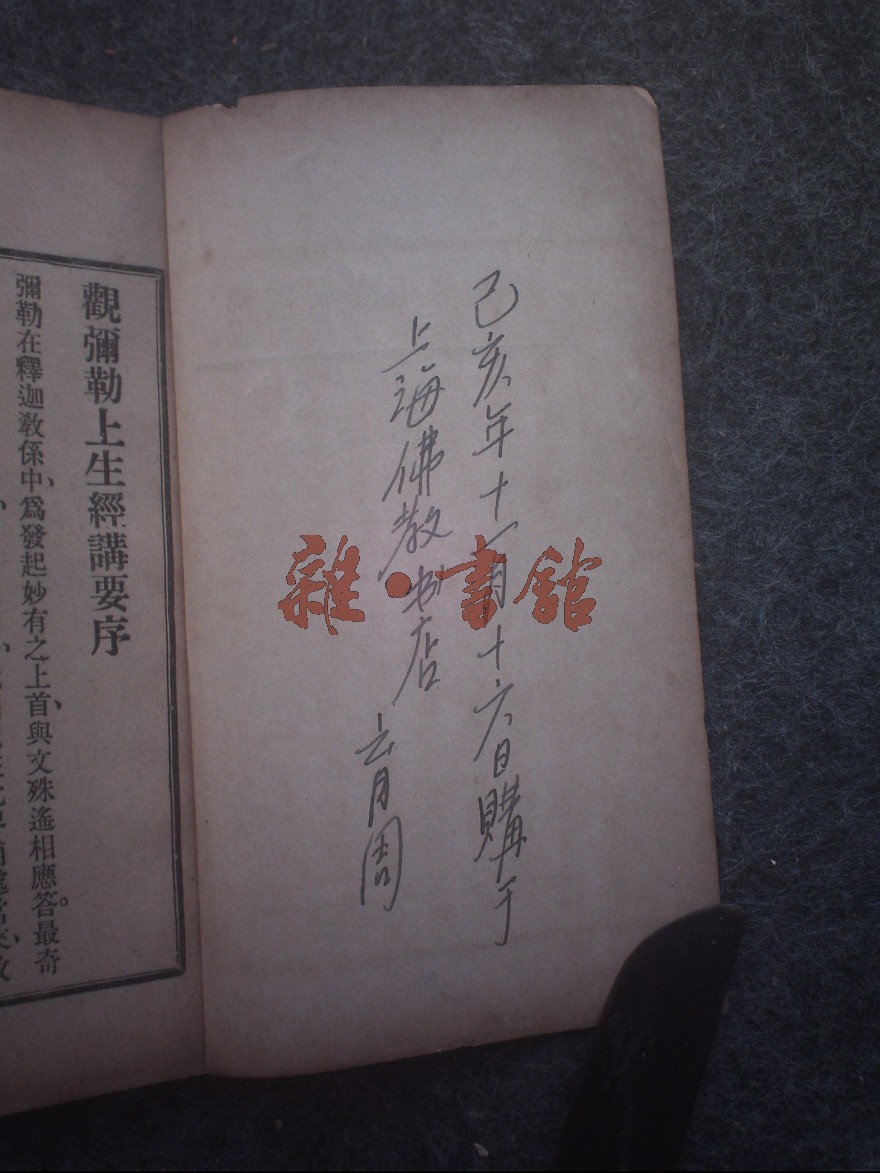 己亥年十一月十六日購于
上海佛教书店
雜·書館
觀彌勒上生經講要序
彌勒在釋迦教係中、爲發起妙有之上首、與文殊遙相應答。最奇